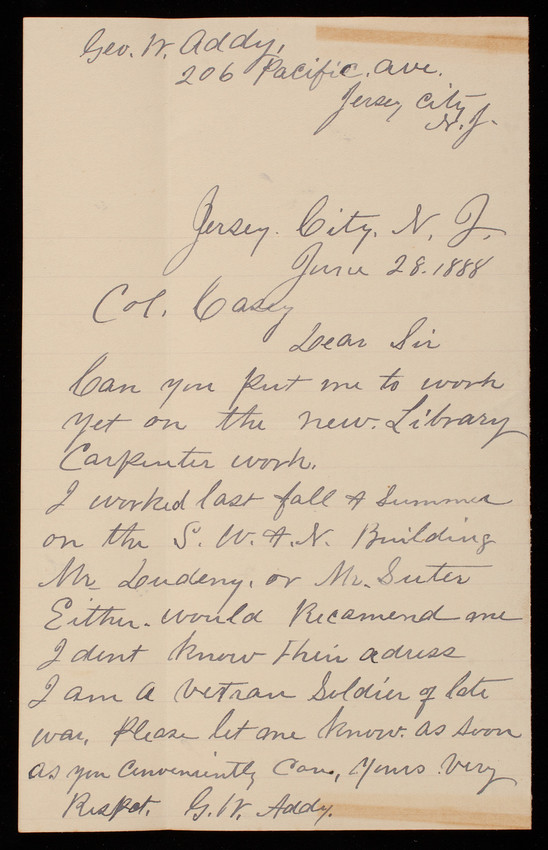 Geo. W. Addy,
206 Pacific. ave.
Jersey City
N. J.
Jersey. City. N. J.
June 28. 1888
Col. Casey
Dear Sir
Can you put me to work
yet on the new. Library
Carpenter work.
I worked last fall & Summer
on the S. W. & N. Building
Mr. or Mr. Suter
Either. would Recamend me
I dont know their adress
I am a vetran Soldier of late
war. Please let me know. as soon
as you Conveniently Can, yours very
Respct. G. W. Addy.